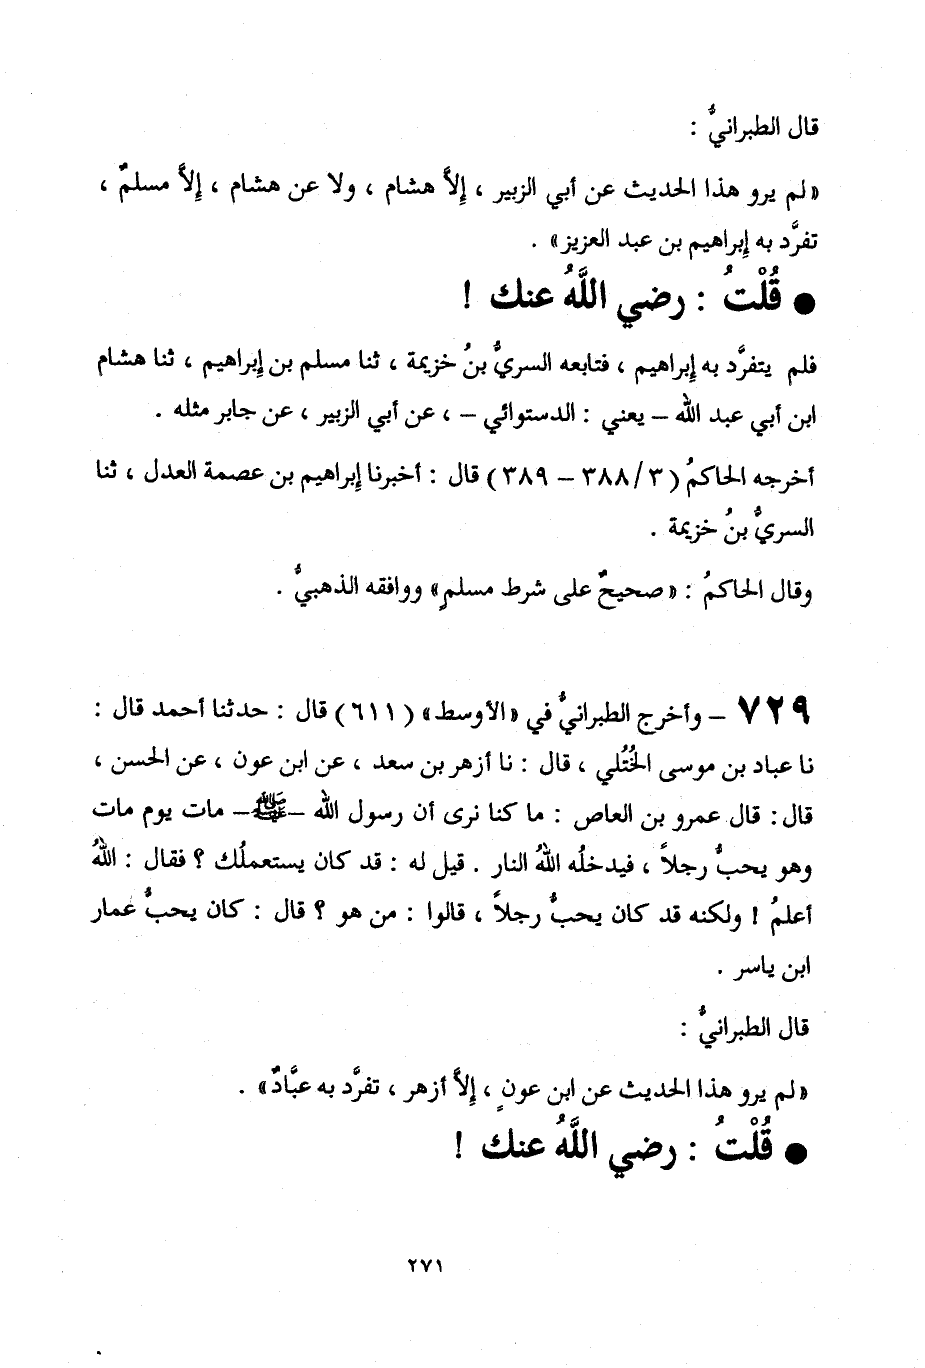 قال الطبرانيُّ :
«لم يرو هذا الحديث عن أبي الزبير ، إلاَّ هشام ، ولا عن هشام ، إلاَّ مسلمٌ ،
تفرَّد به إبراهيم بن عبد العزيز» .
● قُلْتُ : رضي اللَّهُ عنك !
فلم يتفرَّد به إبراهيم ، فتابعه السريُّ بنُ خزيمة ، ثنا مسلم بن إبراهيم ، ثنا هشام
ابن أبي عبد الله – يعني : الدستوائي – ، عن أبي الزبير ، عن جابر مثله .
أخرجه الحاكمُ (٣/ ٣٨٨ – ٣٨٩) قال : أخبرنا إبراهيم بن عصمة العدل ، ثنا
السريُّ بنُ خزيمة .
وقال الحاكمُ : «صحيحٌ على شرط مسلمٍ» ووافقه الذهبيُّ .
٧٢٩ – وأخرج الطبرانيُّ في «الأوسط» (٦١١) قال : حدثنا أحمد قال :
نا عباد بن موسى الخُتُلي ، قال : نا أزهر بن سعد ، عن ابن عون ، عن الحسن ،
قال : قال عمرو بن العاص : ما كنا نرى أن رسول الله –ﷺ– مات يوم مات
وهو يحبُّ رجلاً ، فيدخلُه اللهُ النار . قيل له : قد كان يستعملُك ؟ فقال : اللهُ
أعلمُ ! ولكنه قد كان يحبُّ رجلاً ، قالوا : من هو ؟ قال : كان يحبُّ عمار
ابن ياسر .
قال الطبرانيُّ :
«لم يرو هذا الحديث عن ابن عونٍ ، إلاَّ أزهر ، تفرَّد به عبَّادٌ» .
● قُلْتُ : رضي اللَّهُ عنك !
٢٧١